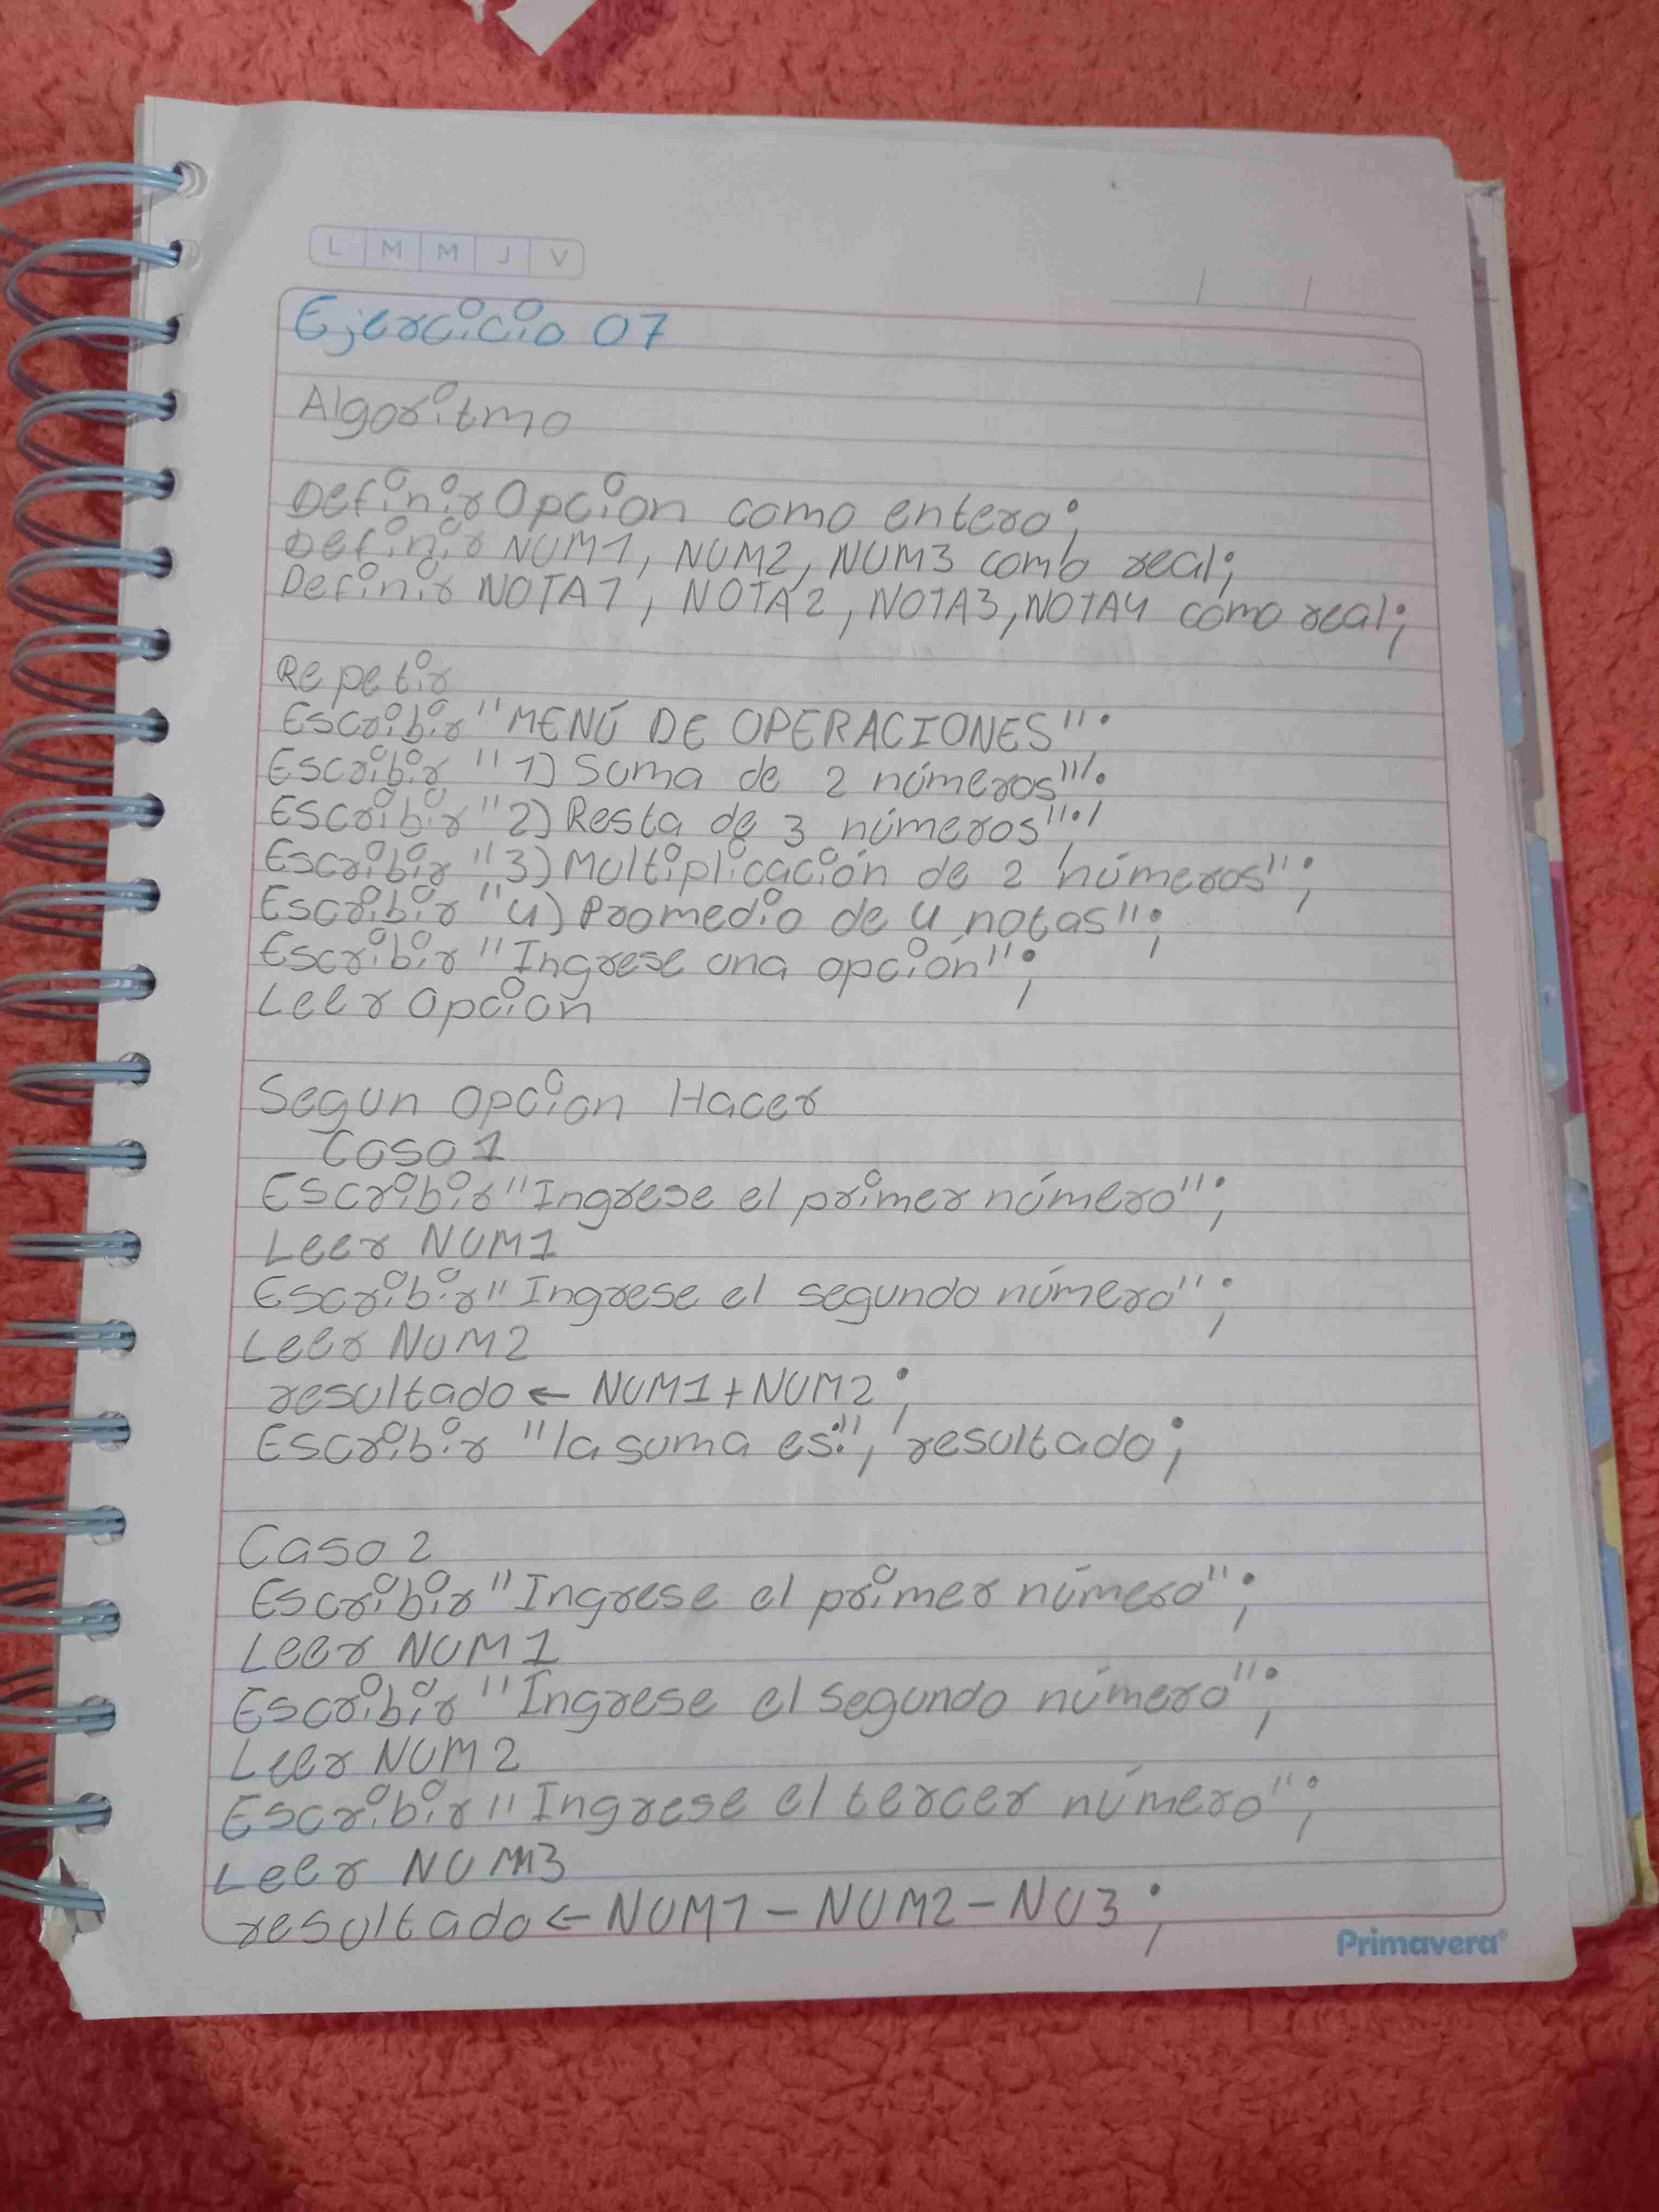 L M M J V
Ejercicio 07
Algoritmo
Definir Opcion como entero;
Definir NUM1, NUM2, NUM3 como real;
Definir NOTA1, NOTA2, NOTA3, NOTA4 como real;
Repetir
Escribir "MENÚ DE OPERACIONES";
Escribir "1) Suma de 2 números";
Escribir "2) Resta de 3 números";
Escribir "3) Multiplicación de 2 números";
Escribir "4) Promedio de 4 notas";
Escribir "Ingrese una opción";
Leer Opcion
Segun opcion Hacer
Caso 1
Escribir "Ingrese el primer número";
Leer NUM1
Escribir "Ingrese el segundo número";
Leer NUM2
resultado ← NUM1 + NUM2;
Escribir "la suma es:", resultado;
Caso 2
Escribir "Ingrese el primer número";
Leer NUM1
Escribir "Ingrese el segundo número";
Leer NUM2
Escribir "Ingrese el tercer número";
Leer NUM3
resultado ← NUM1 - NUM2 - NU3;
Primavera